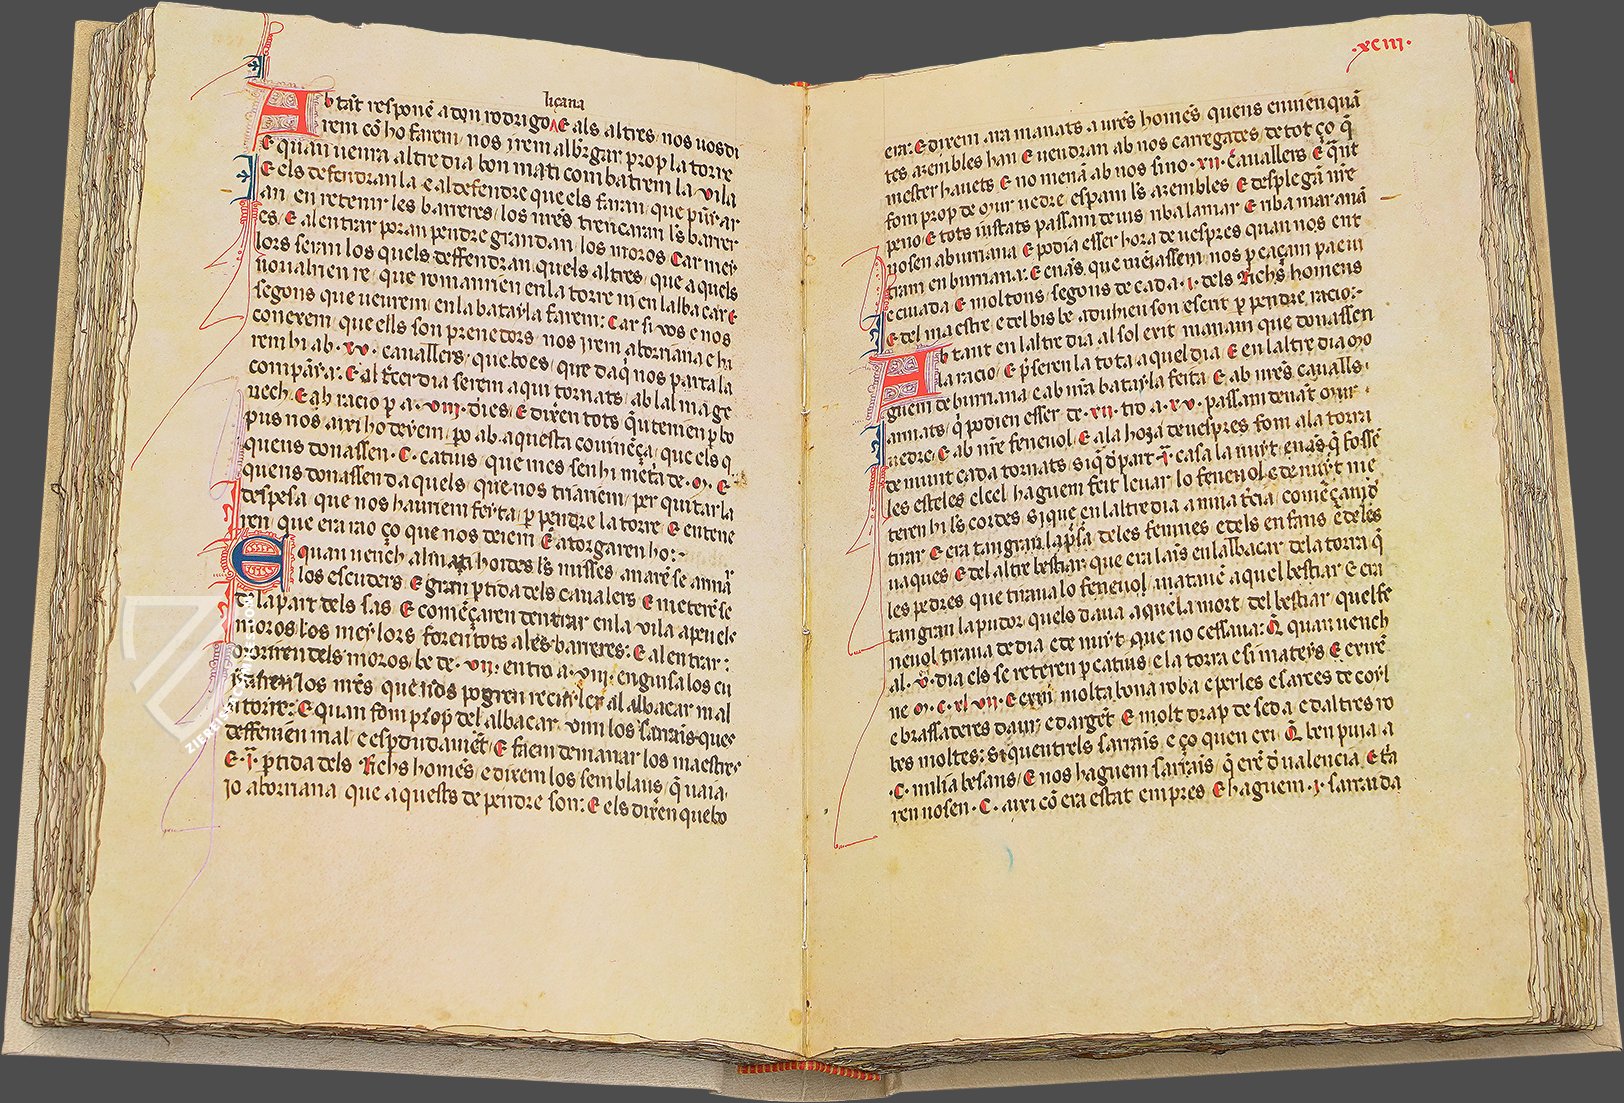 liçana
Ab tāt responē a don rodrigo E als altres nos uos di
irem cō ho farem, nos irem albergar prop la torre
E quan uenra altre dia bon mati combatrem la vila
E els defendran la e al defendre que els faran, que
an en retenir les barreres, los nr̄es trencaran les barrer
es, E al entrar poran pendre gran dan, los moros Car meẏ
lors seran los quels deffendran quels altres, que aquels
nou ahien re, que romannien en la torre ni en lalbacar E
segons que ueurem, en la bataẏla farem: Car si vos e nos
conexem, que ells son prenedors, nos irem a borriana e ha
rem hi ab .xv. cauallers, que bo es, que daq̄ nos parta la
companẏa: E al tercer dia serem aqui tornats, ab lalmage
nech, E ab racio per a .viii. dies, E dixēn tots q̄u tenien per bo
pus nos, axi ho deẏem, po ab aquesta couinēça, que els q̄
quens donassen .C. catius, que mes sen hi
quens donassen daquels, que nos triariem, per quitar la
despesa que nos hauriem feẏta, per pendre la torre, E entene
ren, que era rao ço que nos deiem E atorgaren ho:
E quan uench al mati hordes les misses anarē se armar
los escuders, E gran partida dels caualers E meterē se
de la part dels sas E començaren dentrar en la vila apeuels
moros los meẏlors foren tots a les barreres: E al entrar:
moriren dels moros be de .vii. entro a .viii. en guisa los en
los nr̄es que nos pogren recullir al albacar ni al
a torre: E quan fom prop del albacar viui los sarrais ques
deffenien mal, e esperdudament, E faem demanar los maestres
E .i. partida dels Richs homēs, e dixem los semblaus, q̄ uaia
jo a borriana que aquests de pendre son: E els dixēn que bo
.xciii.
era: E dixem ara manats a ur̄es homēs quens enuien quā
tes azembles han E uendran ab nos carregades de tot ço q̄
mester hauets E no menā ab nos sino .xii. cauallers E q̄nt
fom prop de Mur uedre, espam les azembles E desplegā nr̄e
peno, E tots iustats passam deius riba la mar E riba mar anā
nosen a burriana E podia esser hora de uespres quan nos ent
tram en burriana: E enās que menjassem, nos percaçam pa e ui
e ciuada E moltons, segons de cada .i. dels Richs homens
E del maestre e del bisbe aduhien son escrit per pendre racio:
Ab tant en laltre dia al sol exit manam que donassen
la racio, E preseren la tota aquel dia E en laltre dia mo
guem de burriana e ab nr̄a bataẏla feita E ab nr̄es caualls
armats, q̄ podien esser de .xii. tro a .xv. passam denāt Mur
uedre, E ab nr̄e feneuol, E a la hora de uespres fom a la torra
de munt cada tornats, si q̄ depart casa la nuẏt, enās q̄ fossē
les esteles el cel haguem feit leuar lo feneuol e de nuẏt me
teren hi les cordes, si que en laltre dia a mna tercia, començam d
tirar E era tan gran la pressa, de les femnes e dels enfans e de les
uaques, E del altre bestiar, que era lains en lalbacar de la torra q̄
les pedres que tiraua lo feneuol, mataue aquel bestiar, E era
tan gran la pudor quels daua aquela mort, del bestiar, quel fe
neuol tiraua de dia e de nuẏt que no cessaua: Q̄ quan uench
al .v. dia els se reteren per catius, e la torra e si mateẏs E exirē
ne .M.C.xlvii. E exii molta bona roba, e perles e sartes de coẏl
e brassaderes daur, e dargēt E molt drap de seda e daltres ro
bes moltes: si quentrels sarrais, e ço quen exi Q̄ ben puia a
.C. milia besans, E nos haguem sarrais, q̄ erē d ualencia, E tra
ren nosen .C. axi cō era estat empres E haguem .i. sarrai da